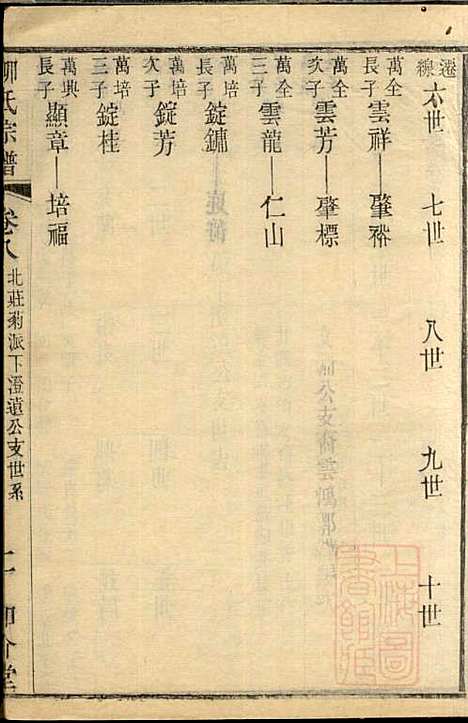 遷線
六世 七世 八世 九世 十世
萬全長子 雲祥 肇裕
萬全次子 雲芳 肇標
萬全三子 雲龍 仁山
萬培長子 錠鏞
萬培次子 錠芳
萬培三子 錠桂
萬興長子 顯章 培福
柳氏宗譜 卷八 北莊菊派下澄遠公支世系
上海圖書館藏